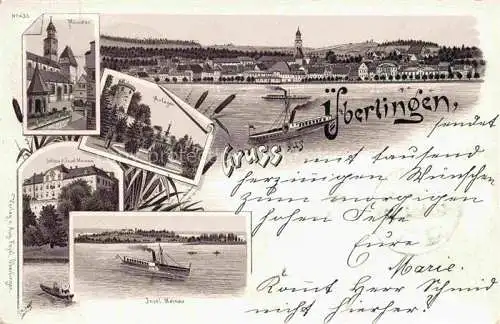 No 432.
Münster
Anlagen
Schloss d. Insel Mainau
Insel Mainau
Gruss aus
Überlingen,
sendet
mit tausend
herzinnigen Wünschen
zum morgigen
hohen Feste
Eure
Marie.
Kömt Herr Schmid
nicht hierher?